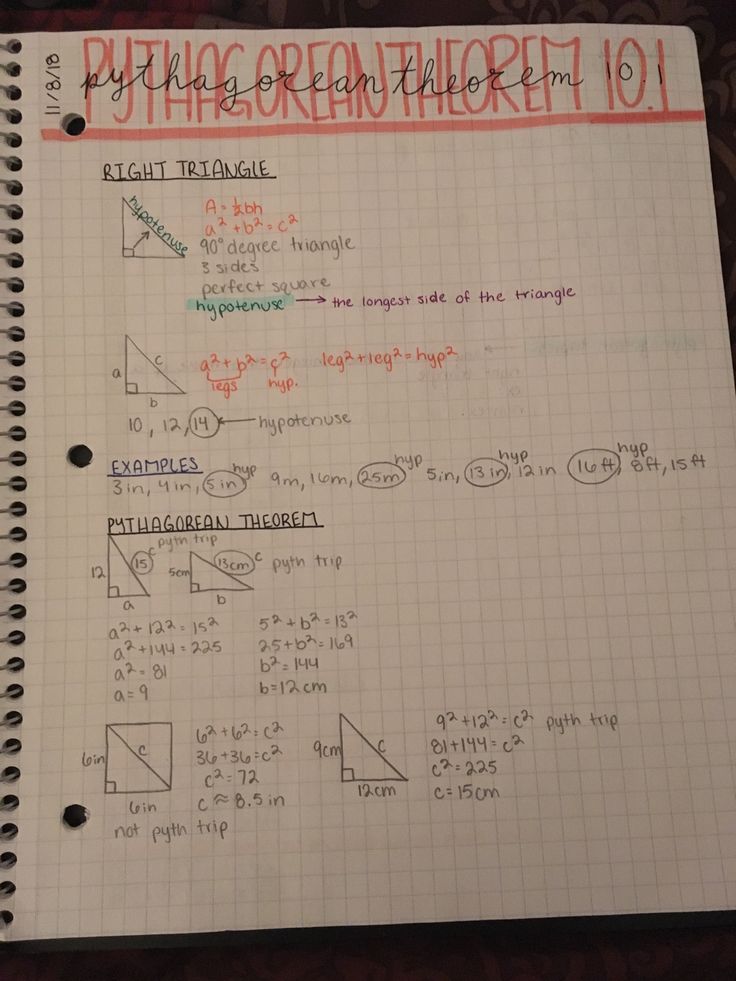 11/8/18
PYTHAGOREAN THEOREM 10.1
pythagorean theorem 10.1
RIGHT TRIANGLE
hypotenuse
A = ½bh
a² + b² = c²
90° degree triangle
3 sides
perfect square
hypotenuse → the longest side of the triangle
a
c
b
a² + b² = c² leg² + leg² = hyp²
legs hyp.
10, 12, 14 ← hypotenuse
EXAMPLES
3 in, 4 in, 5 in hyp 9m, 16m, 25m hyp 5in, 13 in hyp, 12 in 16 ft hyp, 8ft, 15 ft
PYTHAGOREAN THEOREM
12 15 c pyth trip
a
5cm 13cm c pyth trip
b
a² + 12² = 15²
a² + 144 = 225
a² = 81
a = 9
5² + b² = 13²
25 + b² = 169
b² = 144
b = 12 cm
6in c
6in
not pyth trip
6² + 6² = c²
36 + 36 = c²
c² = 72
c ≈ 8.5 in
9cm c
12cm
9² + 12² = c² pyth trip
81 + 144 = c²
c² = 225
c = 15cm